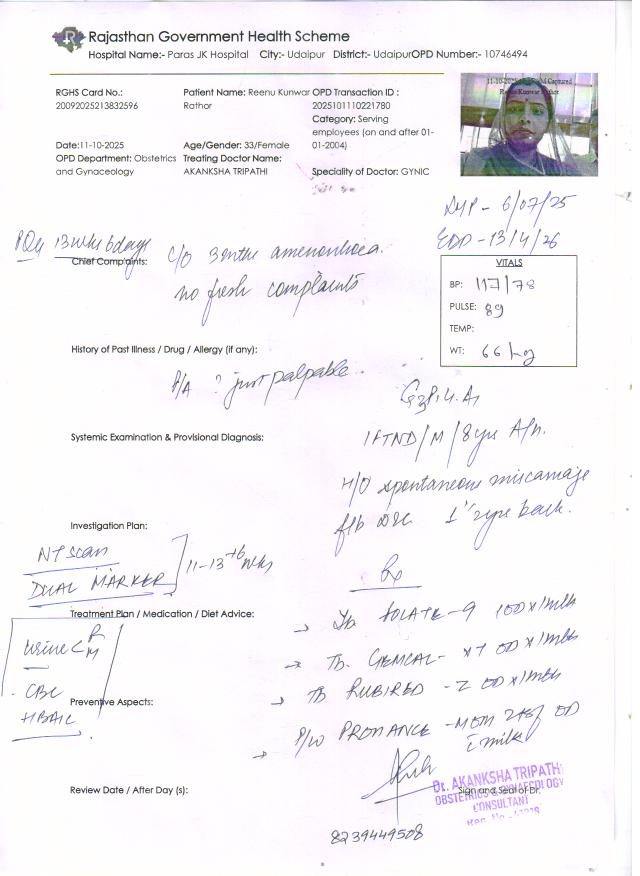 Rajasthan Government Health Scheme
Hospital Name:- Paras JK Hospital City:- Udaipur District:- UdaipurOPD Number:- 10746494
RGHS Card No.: 20092025213832596
Patient Name: Reenu Kunwar Rathor
OPD Transaction ID : 2025101110221780
Category: Serving employees (on and after 01-01-2004)
Date:11-10-2025
Age/Gender: 33/Female
OPD Department: Obstetrics and Gynaceology
Treating Doctor Name: AKANKSHA TRIPATHI
Speciality of Doctor: GYNIC
11-10-2025 Captured
Reenu Kunwar Rathor
LMP - 6/07/25
EDD - 13/4/26
POG 13 wks 6days
Chief Complaints:
C/O 3 mths amenorrhoea.
no fresh complaints
VITALS
BP: 117/78
PULSE: 89
TEMP:
WT: 66 kg
History of Past Illness / Drug / Allergy (if any):
P/A ? just palpable
G3P1L1A1
Systemic Examination & Provisional Diagnosis:
1 FTND/M/8yrs A/h.
H/O spontaneous miscarriage
f/b D&C 1½ yrs back.
Investigation Plan:
NT scan
DUAL MARKER
11-13+6 wks
Rx
Treatment Plan / Medication / Diet Advice:
→ Tb FOLATE-9 OD x 1mth
Urine C R M
→ Tb. GEMCAL- XT OD x 1mth
- CBC
→ Tb RUBIRED - Z OD x 1mth
Preventive Aspects:
HBA1C
→ P/w PROMANCE - MOM 2tsf OD
c milk
Review Date / After Day (s):
Dr. AKANKSHA TRIPATHI
OBSTETRICS & GYNAECOLOGY
CONSULTANT
Reg. No.
Sign and Seal of Dr.
8239449508